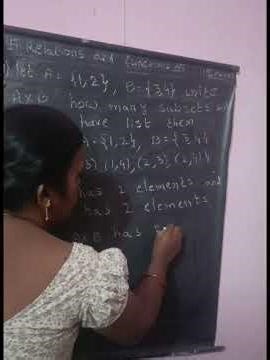 Relations and Functions
let A = {1,2}, B = {3,4} write
A×B how many subsets
have list them
A = {1,2}, B = {3,4}
3) (1,4), (2,3), (2,4) }
has 2 elements and
has 2 elements
A×B has